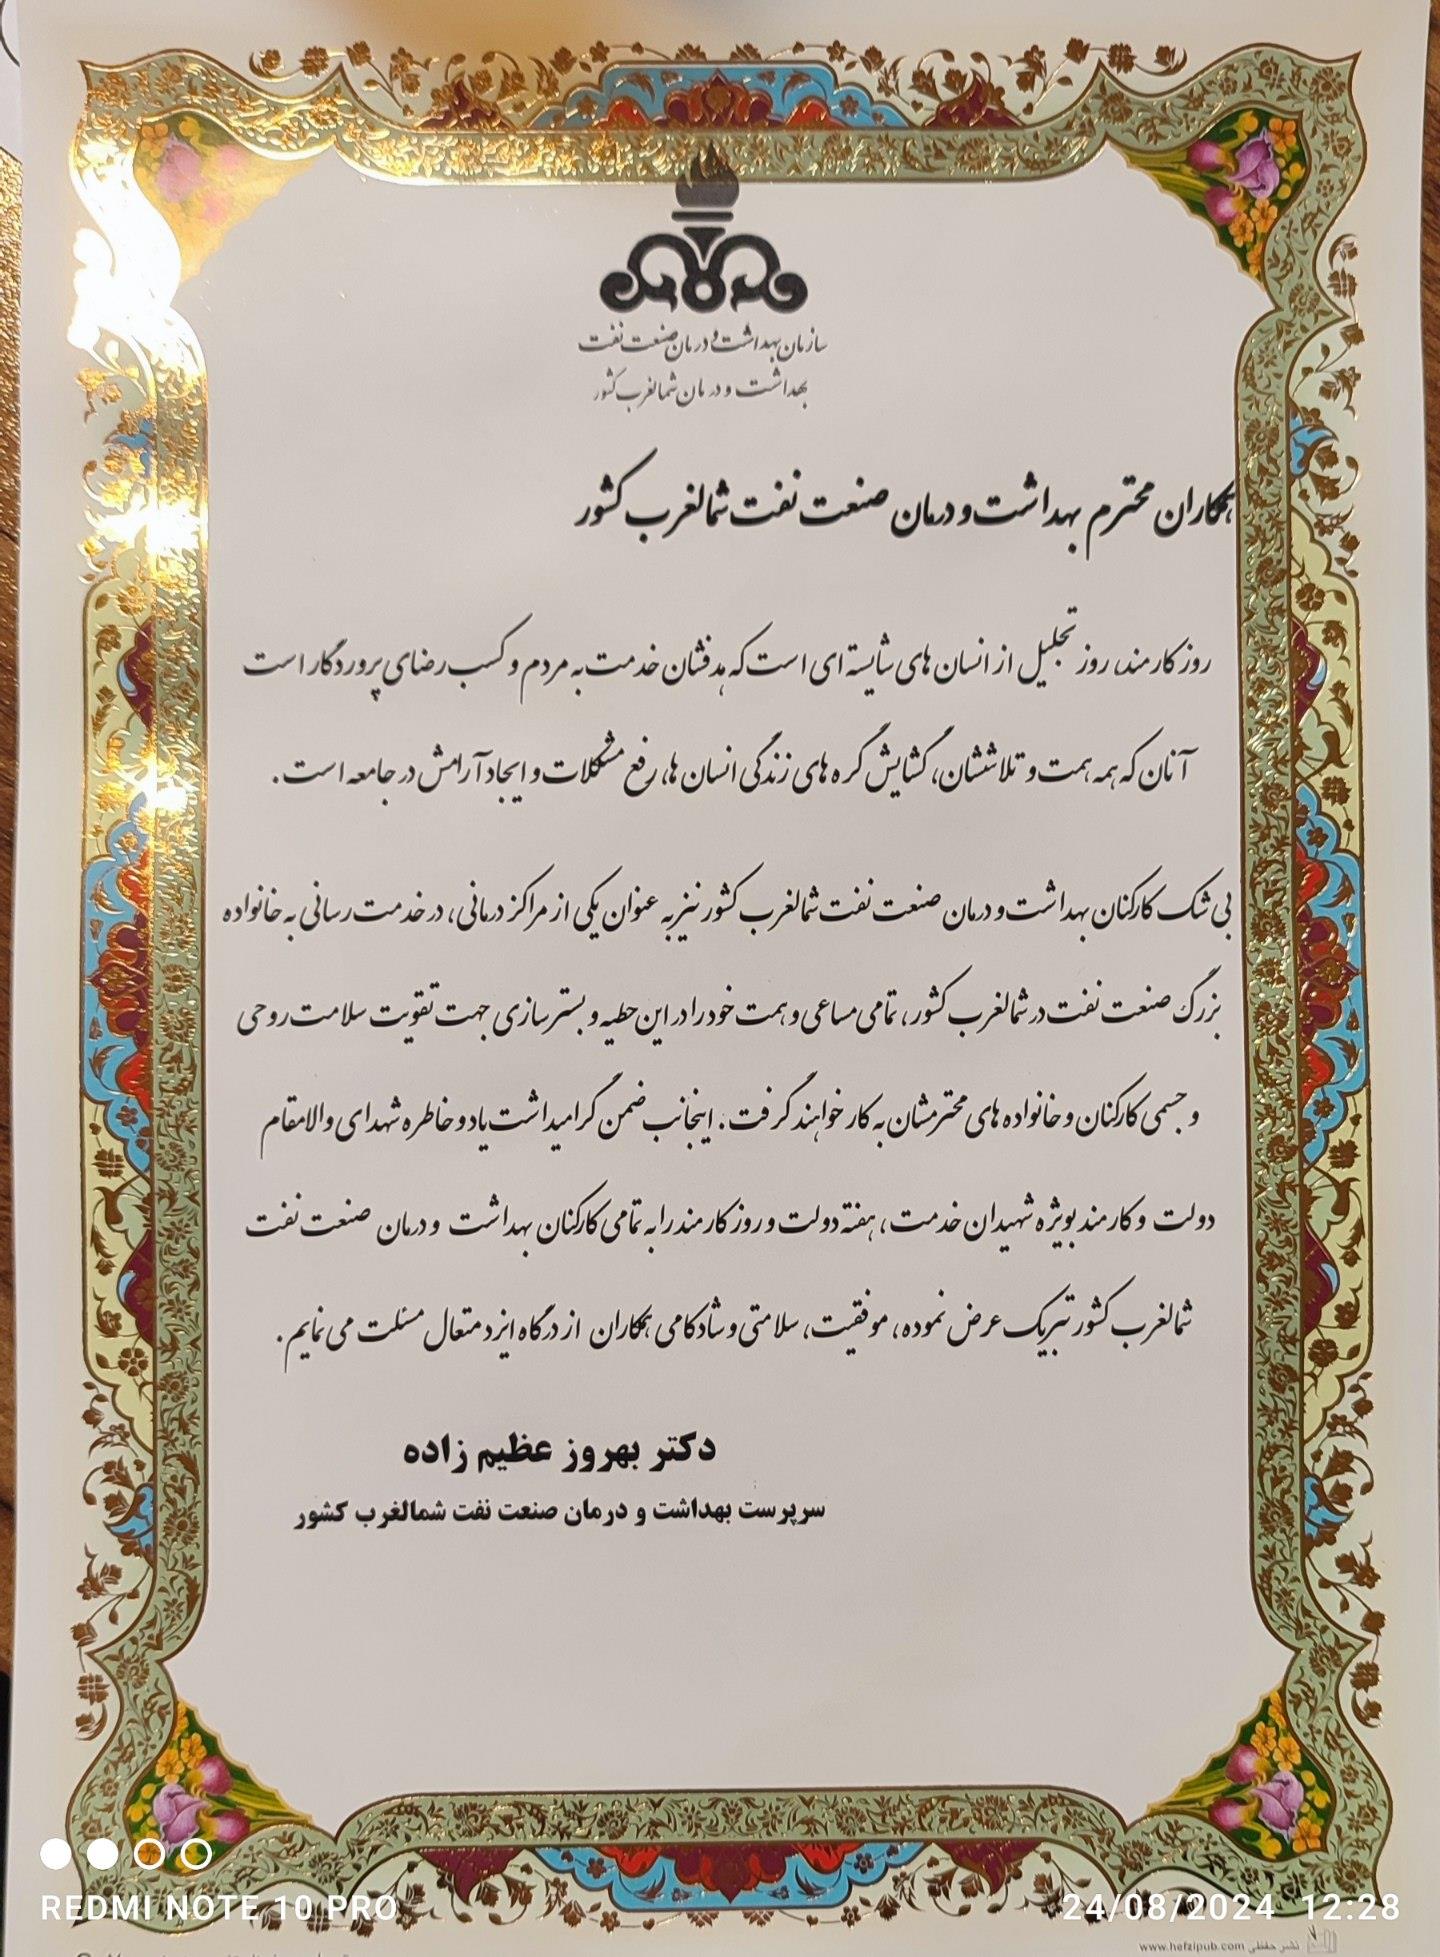 سازمان بهداشت و درمان صنعت نفت
بهداشت و درمان شمالغرب کشور
همکاران محترم بهداشت و درمان صنعت نفت شمالغرب کشور
روز کارمند، روز تجلیل از انسان های شایسته ای است که هدفشان خدمت به مردم و کسب رضای پروردگار است
آنان که همه همت و تلاششان، گشایش گره های زندگی انسان ها، رفع مشکلات و ایجاد آرامش در جامعه است.
بی شک کارکنان بهداشت و درمان صنعت نفت شمالغرب کشور نیز به عنوان یکی از مراکز درمانی، در خدمت رسانی به خانواده
بزرگ صنعت نفت در شمالغرب کشور، تمامی مساعی و همت خود را در این حطیه و بسترسازی جهت تقویت سلامت روحی
و جسمی کارکنان و خانواده های محترمشان به کار خواهند گرفت. اینجانب ضمن گرامیداشت یاد و خاطره شهدای والامقام
دولت و کارمند بویژه شهیدان خدمت، هفته دولت و روز کارمند را به تمامی کارکنان بهداشت و درمان صنعت نفت
شمالغرب کشور تبریک عرض نموده، موفقیت، سلامتی و شادکامی همکاران از درگاه ایزد متعال مسئلت می نمایم.
دکتر بهروز عظیم زاده
سرپرست بهداشت و درمان صنعت نفت شمالغرب کشور
REDMI NOTE 10 PRO
24/08/2024 12:28
www.hefzipub.com نشر حفظی